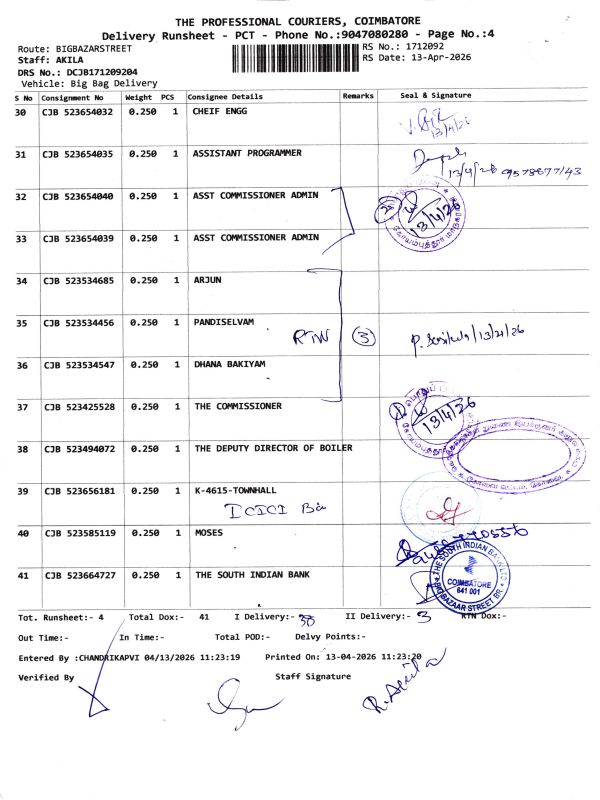 THE PROFESSIONAL COURIERS, COIMBATORE
Delivery Runsheet - PCT - Phone No.:9047080280 - Page No.:4
Route: BIGBAZARSTREET RS No.: 1712092
Staff: AKILA RS Date: 13-Apr-2026
DRS No.: DCJB171209204
Vehicle: Big Bag Delivery
S No Consignment No Weight PCS Consignee Details Remarks Seal & Signature
30 CJB 523654032 0.250 1 CHEIF ENGG
13/4/26
31 CJB 523654035 0.250 1 ASSISTANT PROGRAMMER
13/4/26
32 CJB 523654040 0.250 1 ASST COMMISSIONER ADMIN
13/4/26
33 CJB 523654039 0.250 1 ASST COMMISSIONER ADMIN
34 CJB 523534685 0.250 1 ARJUN
35 CJB 523534456 0.250 1 PANDISELVAM
3
36 CJB 523534547 0.250 1 DHANA BAKIYAM
37 CJB 523425528 0.250 1 THE COMMISSIONER
13/4/26
38 CJB 523494072 0.250 1 THE DEPUTY DIRECTOR OF BOILER
39 CJB 523656181 0.250 1 K-4615-TOWNHALL
ICICI Ba
40 CJB 523585119 0.250 1 MOSES
41 CJB 523664727 0.250 1 THE SOUTH INDIAN BANK
THE SOUTH INDIAN BANK LTD
COIMBATORE
641 001
BIG BAZAAR STREET BR
Tot. Runsheet:- 4 Total Dox:- 41 I Delivery:- 38 II Delivery:- 3 RTN Dox:-
Out Time:- In Time:- Total POD:- Delvy Points:-
Entered By :CHANDRIKAPVI 04/13/2026 11:23:19 Printed On: 13-04-2026 11:23:20
Verified By Staff Signature
R. Akila